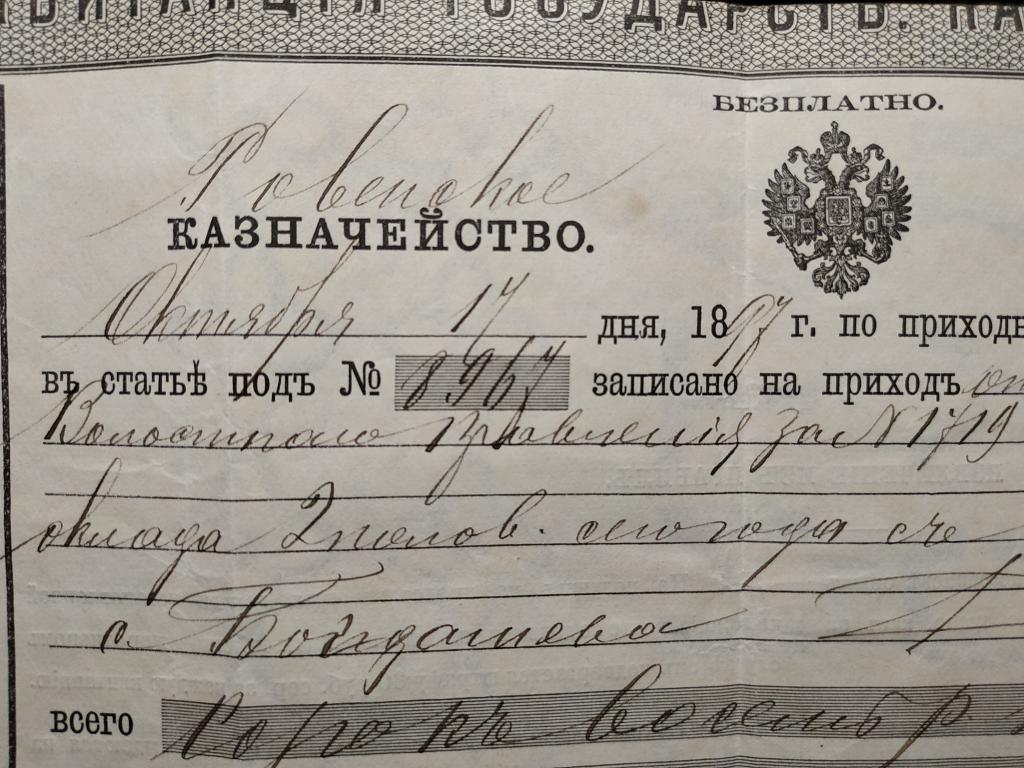 КВИТАНЦІЯ ГОСУДАРСТВ. КА
БЕЗПЛАТНО.
Ровенское
КАЗНАЧЕЙСТВО.
Октября 17 дня, 1897 г. по приходн
въ статьѣ подъ № 8967 записано на приходъ от
Волостного Правленія за N 1719
оклада 2 полов. сего года съ
с. Бойдашева
всего Сорокъ восемь р